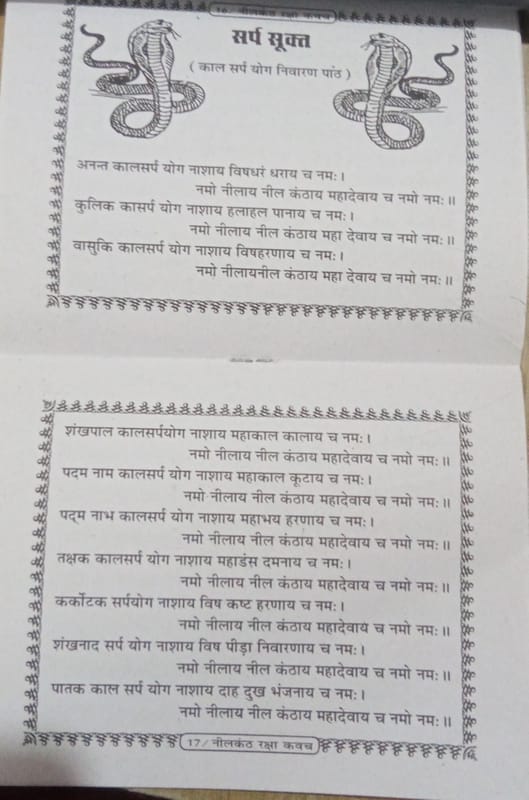 16/ नीलकंठ रक्षा कवच
सर्प सूक्त
( काल सर्प योग निवारण पांठ )
अनन्त कालसर्प योग नाशाय विषधरं धराय च नमः।
नमो नीलाय नील कंठाय महादेवाय च नमो नमः॥
कुलिक कासर्प योग नाशाय हलाहल पानाय च नमः।
नमो नीलाय नील कंठाय महा देवाय च नमो नमः॥
वासुकि कालसर्प योग नाशाय विषहरणाय च नमः।
नमो नीलायनील कंठाय महा देवाय च नमो नमः॥
शंखपाल कालसर्पयोग नाशाय महाकाल कालाय च नमः।
नमो नीलाय नील कंठाय महादेवाय च नमो नमः॥
पदम नाम कालसर्प योग नाशाय महाकाल कूटाय च नमः।
नमो नीलाय नील कंठाय महादेवाय च नमो नमः॥
पद्म नाभ कालसर्प योग नाशाय महाभय हरणाय च नमः।
नमो नीलाय नील कंठाय महादेवाय च नमो नमः॥
तक्षक कालसर्प योग नाशाय महाडंस दमनाय च नमः।
नमो नीलाय नील कंठाय महादेवाय च नमो नमः॥
कर्कोटक सर्पयोग नाशाय विष कष्ट हरणाय च नमः।
नमो नीलाय नील कंठाय महादेवाय च नमो नमः॥
शंखनाद सर्प योग नाशाय विष पीड़ा निवारणाय च नमः।
नमो नीलाय नील कंठाय महादेवाय च नमो नमः॥
पातक काल सर्प योग नाशाय दाह दुख भंजनाय च नमः।
नमो नीलाय नील कंठाय महादेवाय च नमो नमः॥
17/ नीलकंठ रक्षा कवच